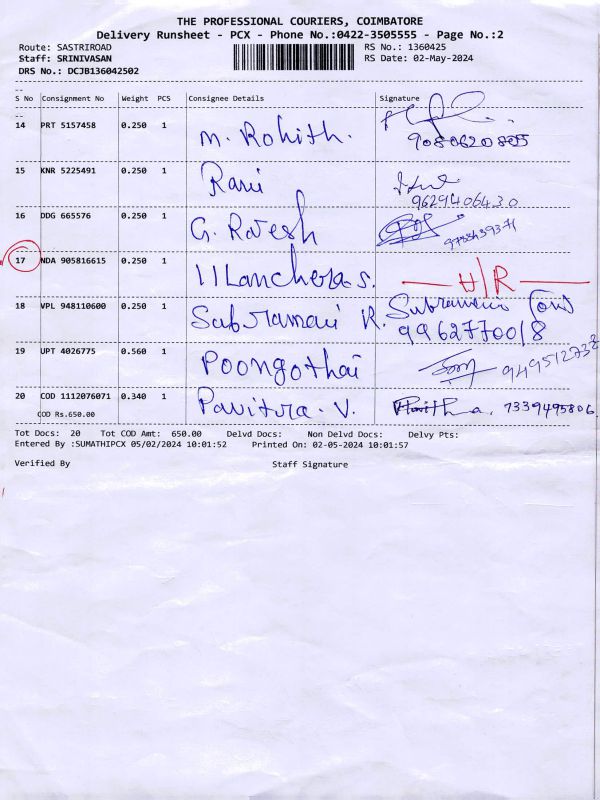 THE PROFESSIONAL COURIERS, COIMBATORE
Delivery Runsheet - PCX - Phone No.:0422-3505555 - Page No.:2
Route: SASTRIROAD RS No.: 1360425
Staff: SRINIVASAN RS Date: 02-May-2024
DRS No.: DCJB136042502
S No Consignment No Weight PCS Consignee Details Signature
14 PRT 5157458 0.250 1 M. Rohith. 9080620805
15 KNR 5225491 0.250 1 Ravi 9629406430
16 DDG 665576 0.250 1 G. Rajesh
17 NDA 905816615 0.250 1 s. H/R
18 VPL 948110600 0.250 1 Subramani R. Subramani (on)
9962770018
19 UPT 4026775 0.560 1 Poongothai
20 COD 1112076071 0.340 1 Pavitra. V. 7339495806.
COD Rs.650.00
Tot Docs: 20 Tot COD Amt: 650.00 Delvd Docs: Non Delvd Docs: Delvy Pts:
Entered By :SUMATHIPCX 05/02/2024 10:01:52 Printed On: 02-05-2024 10:01:57
Verified By Staff Signature